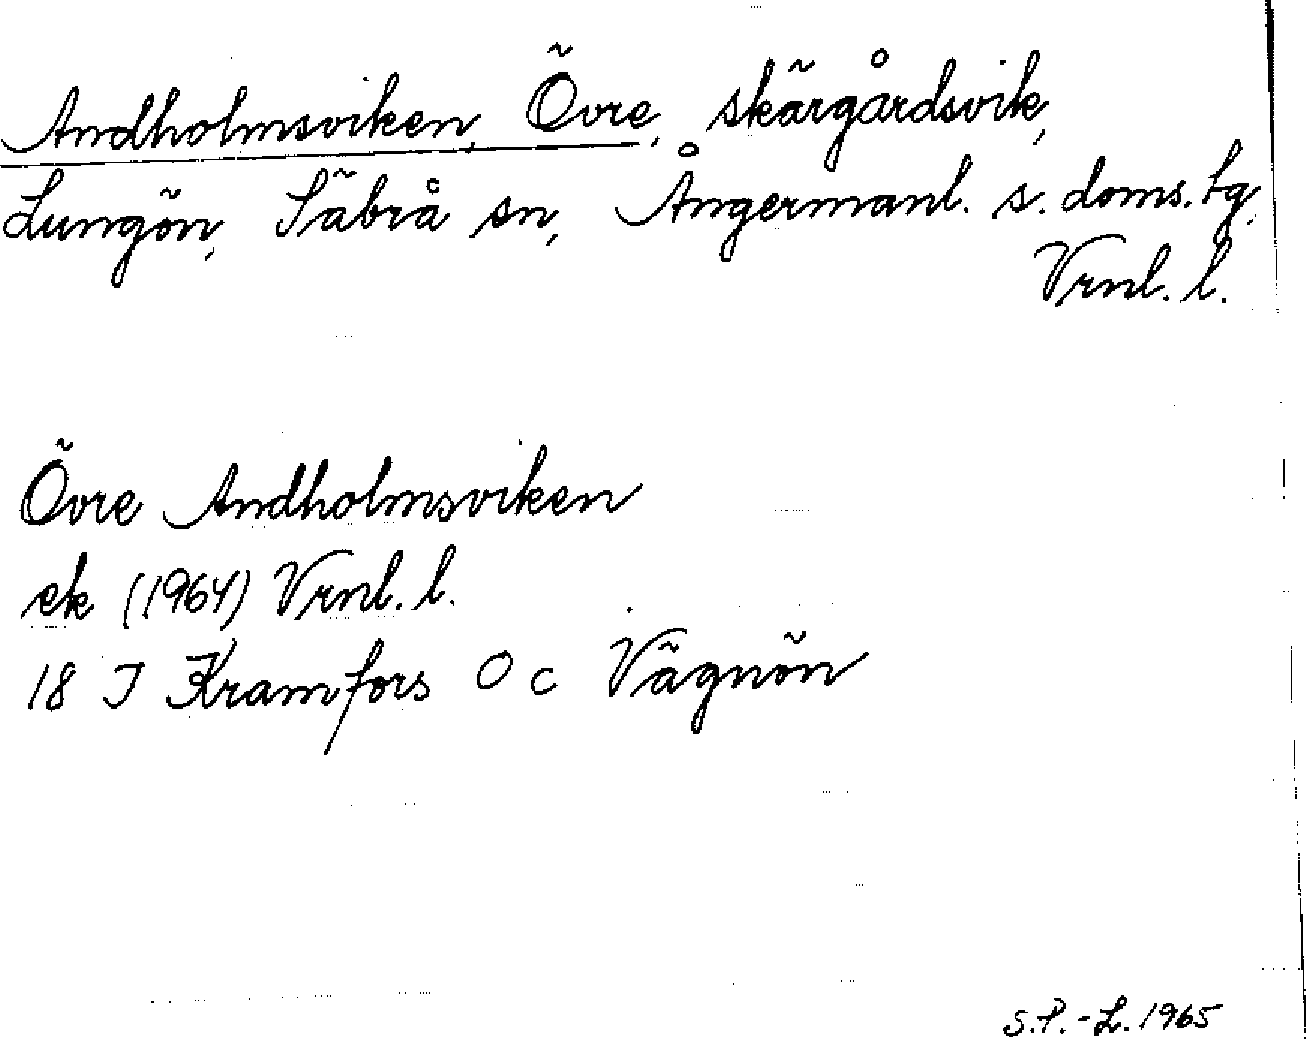 Andholmsviken, Övre, skärgårdsvik,
Lungön, Säbrå sn, Ångermanl. s. doms. tg,
Vrnl. l.
Övre Andholmsviken
ek (1964) Vrnl. l.
18 J Kramfors O c Vägnön
S.P.-L. 1965